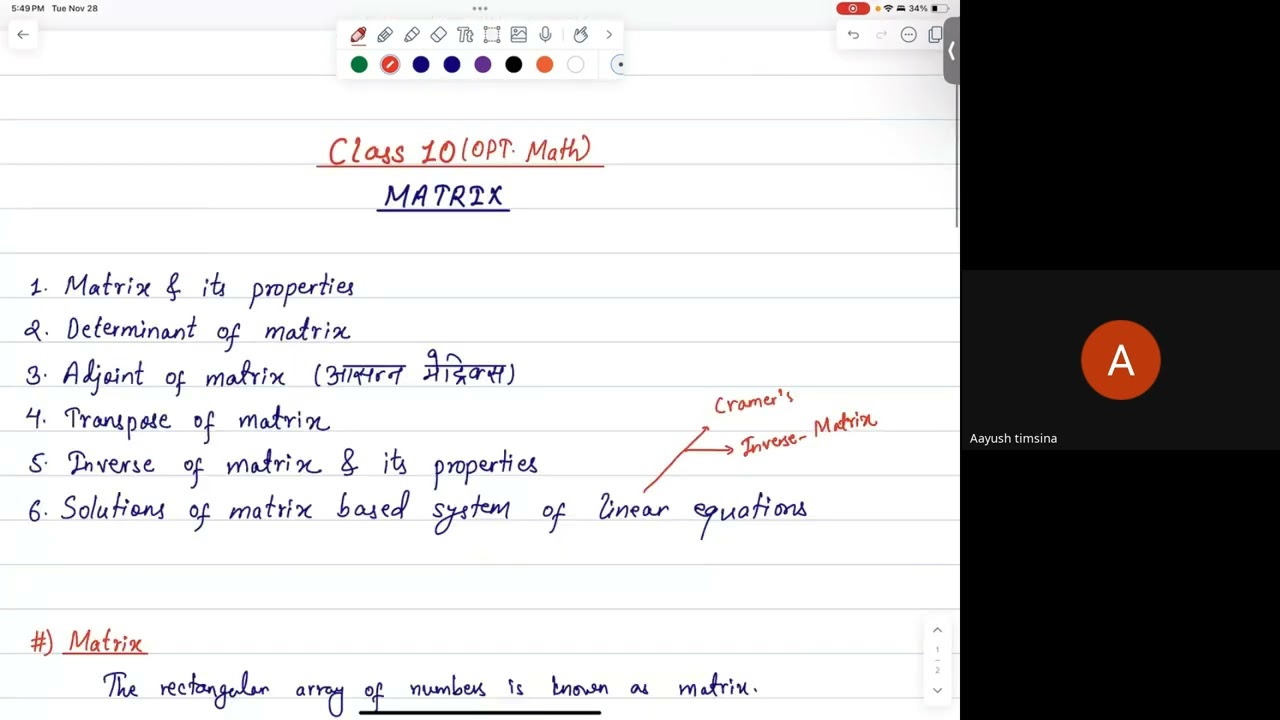 5:49 PM Tue Nov 28
34%
Tt
Class 10 (OPT. Math)
MATRIX
1. Matrix & its properties
2. Determinant of matrix
3. Adjoint of matrix (आसन्न मैट्रिक्स)
Cramer's
4. Transpose of matrix
Inverse-Matrix
5. Inverse of matrix & its properties
6. Solutions of matrix based system of linear equations
#) Matrix
The rectangular array of numbers is known as matrix.
1
2
A
Aayush timsina